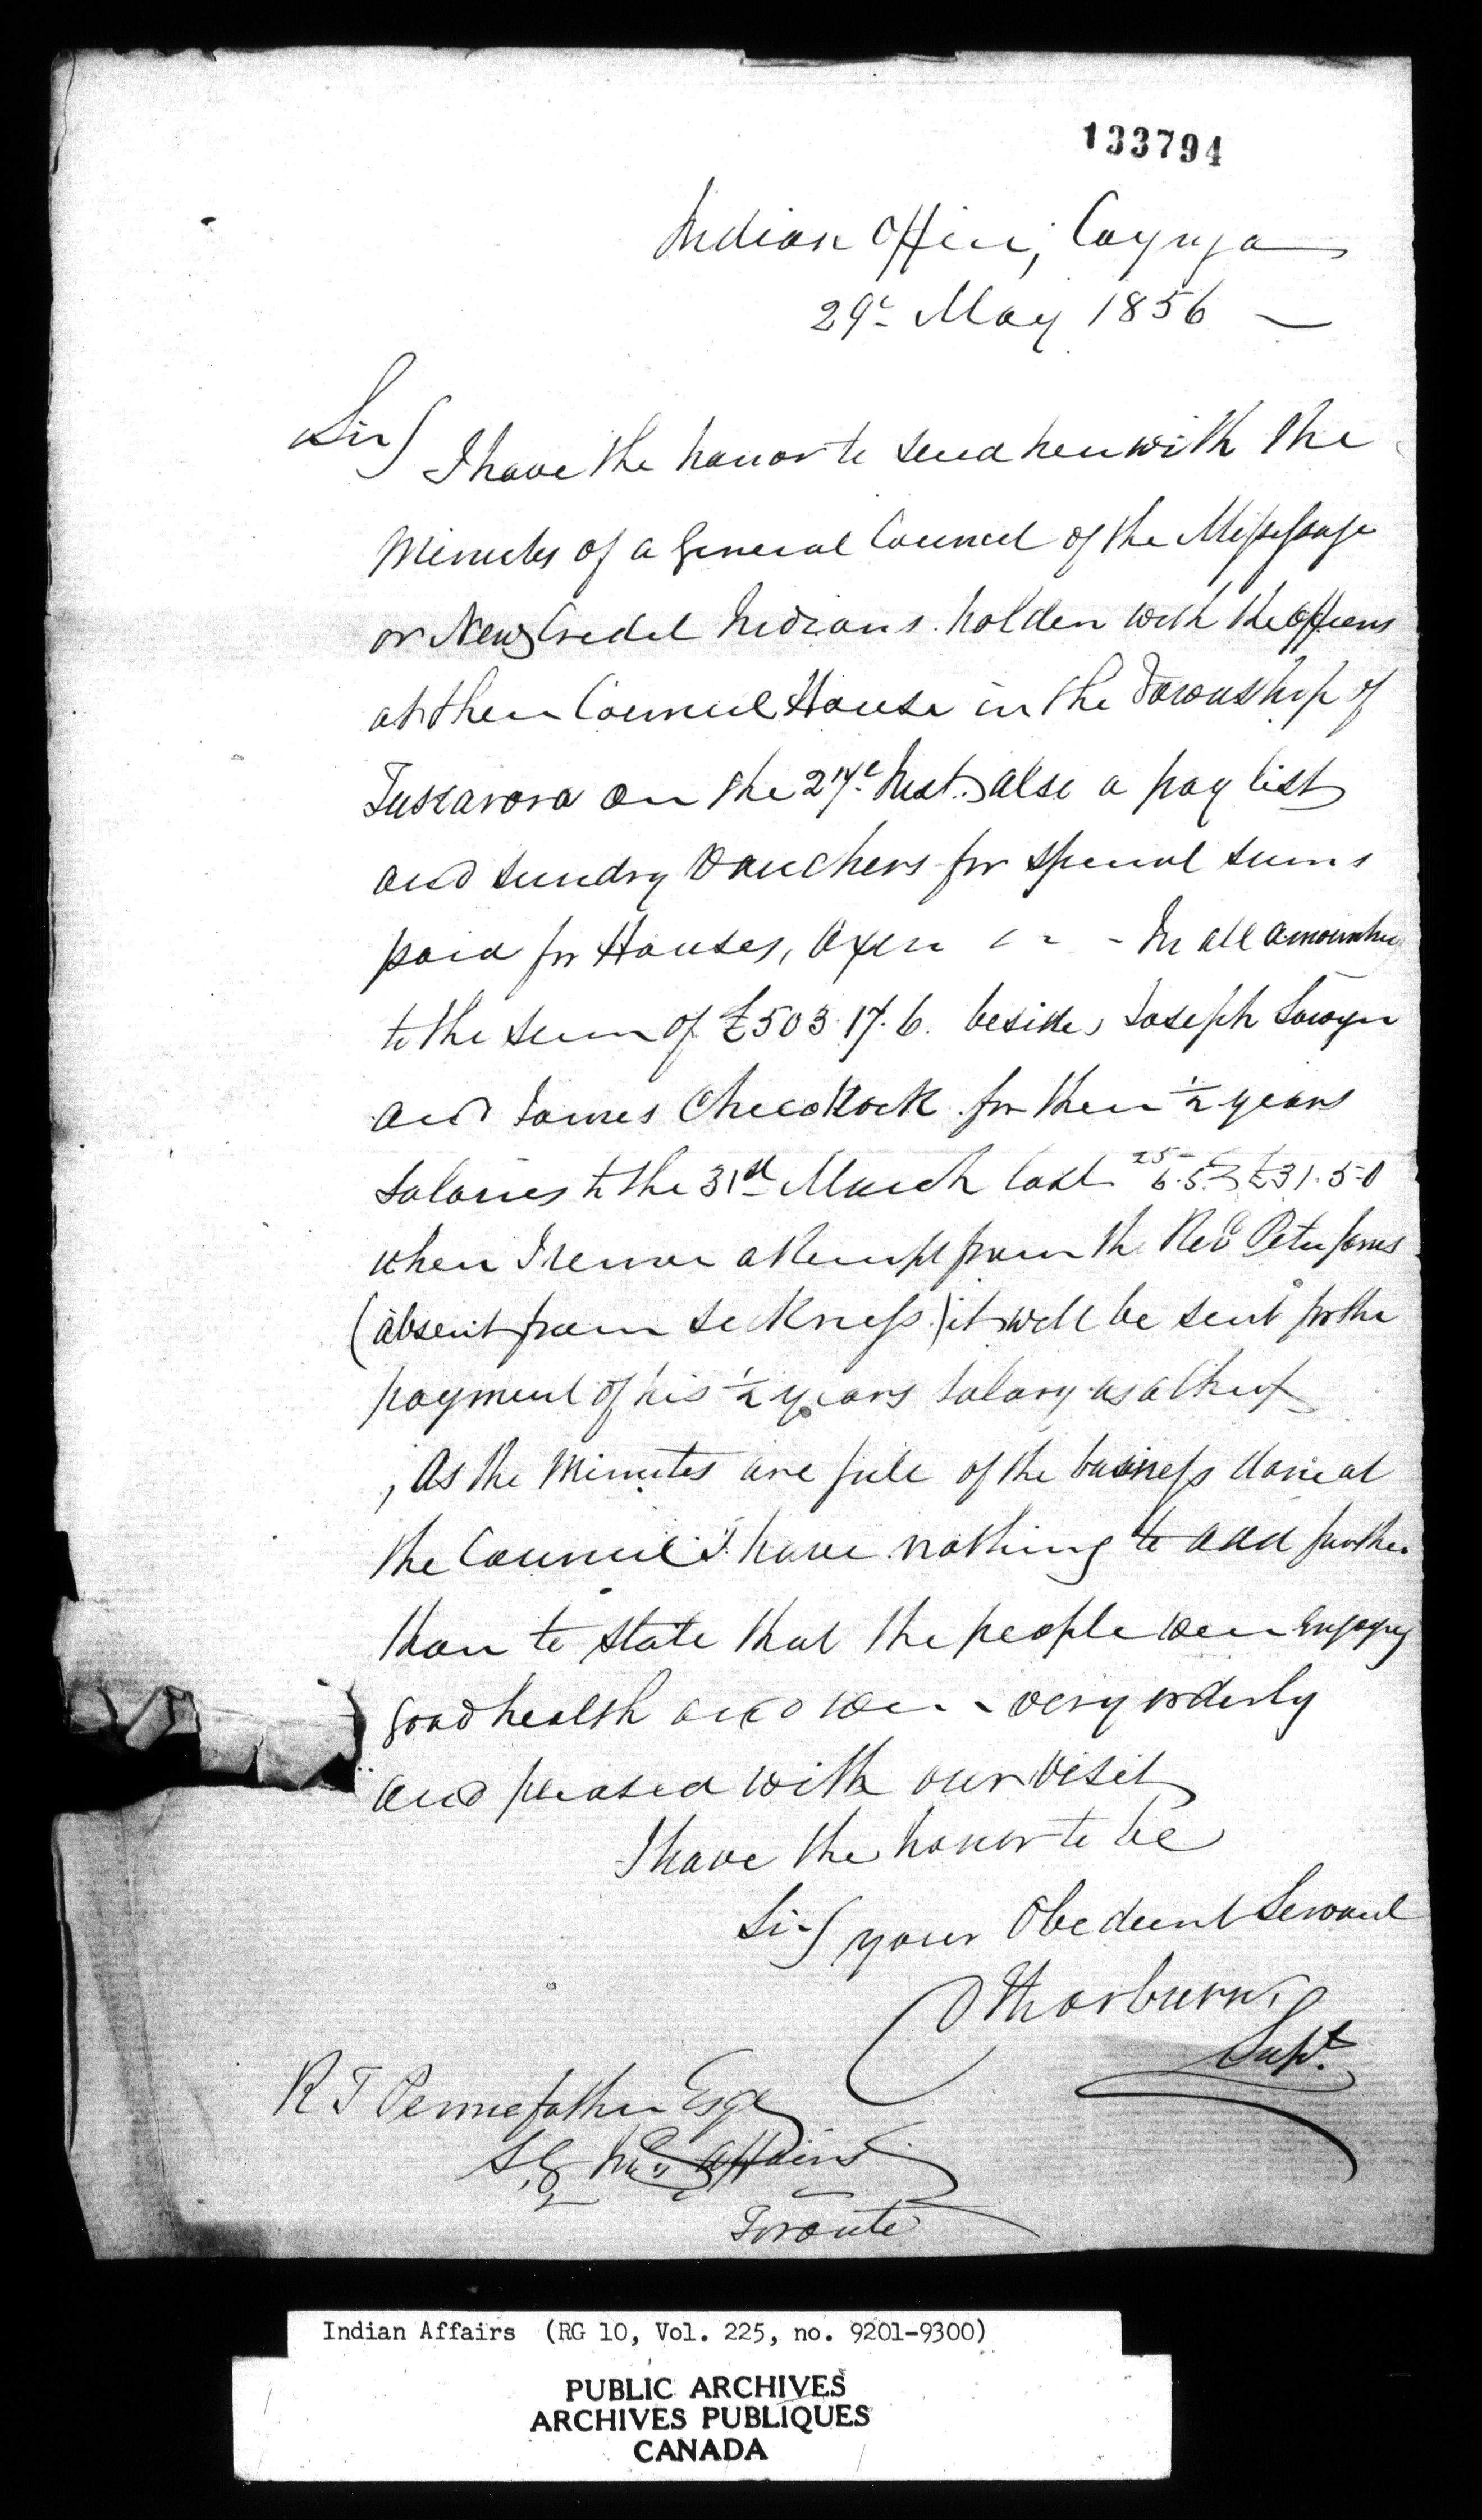 133794
Indian Office, Cayuga
29th May 1856
Sir
I have the honor to send herewith the
Minutes of a General Council of the Missessaga
or New Credit Indians holden with the officers
at their Council House in the Township of
Tuscarora on the 27th Inst. also a pay list
and sundry vouchers for special sums
paid for Houses, Oxen - - - In all amounting
to the sum of £503.17.6. besides Joseph Sawyer
and James Chechock for their ½ years
Salaries to the 31st March last 25- 6.5- £31.5-0
when I receive a Receipt from the Revd Peter Jones
(absent from sickness) it will be sent for the
payment of his ½ years Salary as a Chief
As the Minutes are full of the business done at
the Council I have nothing to add further
than to state that the people were Enjoying
good health and were very orderly
and pleased with our visit
I have the honor to be
Sir your Obedient Servant
D Thorburn
Supt.
R T Pennefather Esqr
S.G. Ind. Affairs
Toronto
Indian Affairs (RG 10, Vol. 225, no. 9201-9300)
PUBLIC ARCHIVES
ARCHIVES PUBLIQUES
CANADA